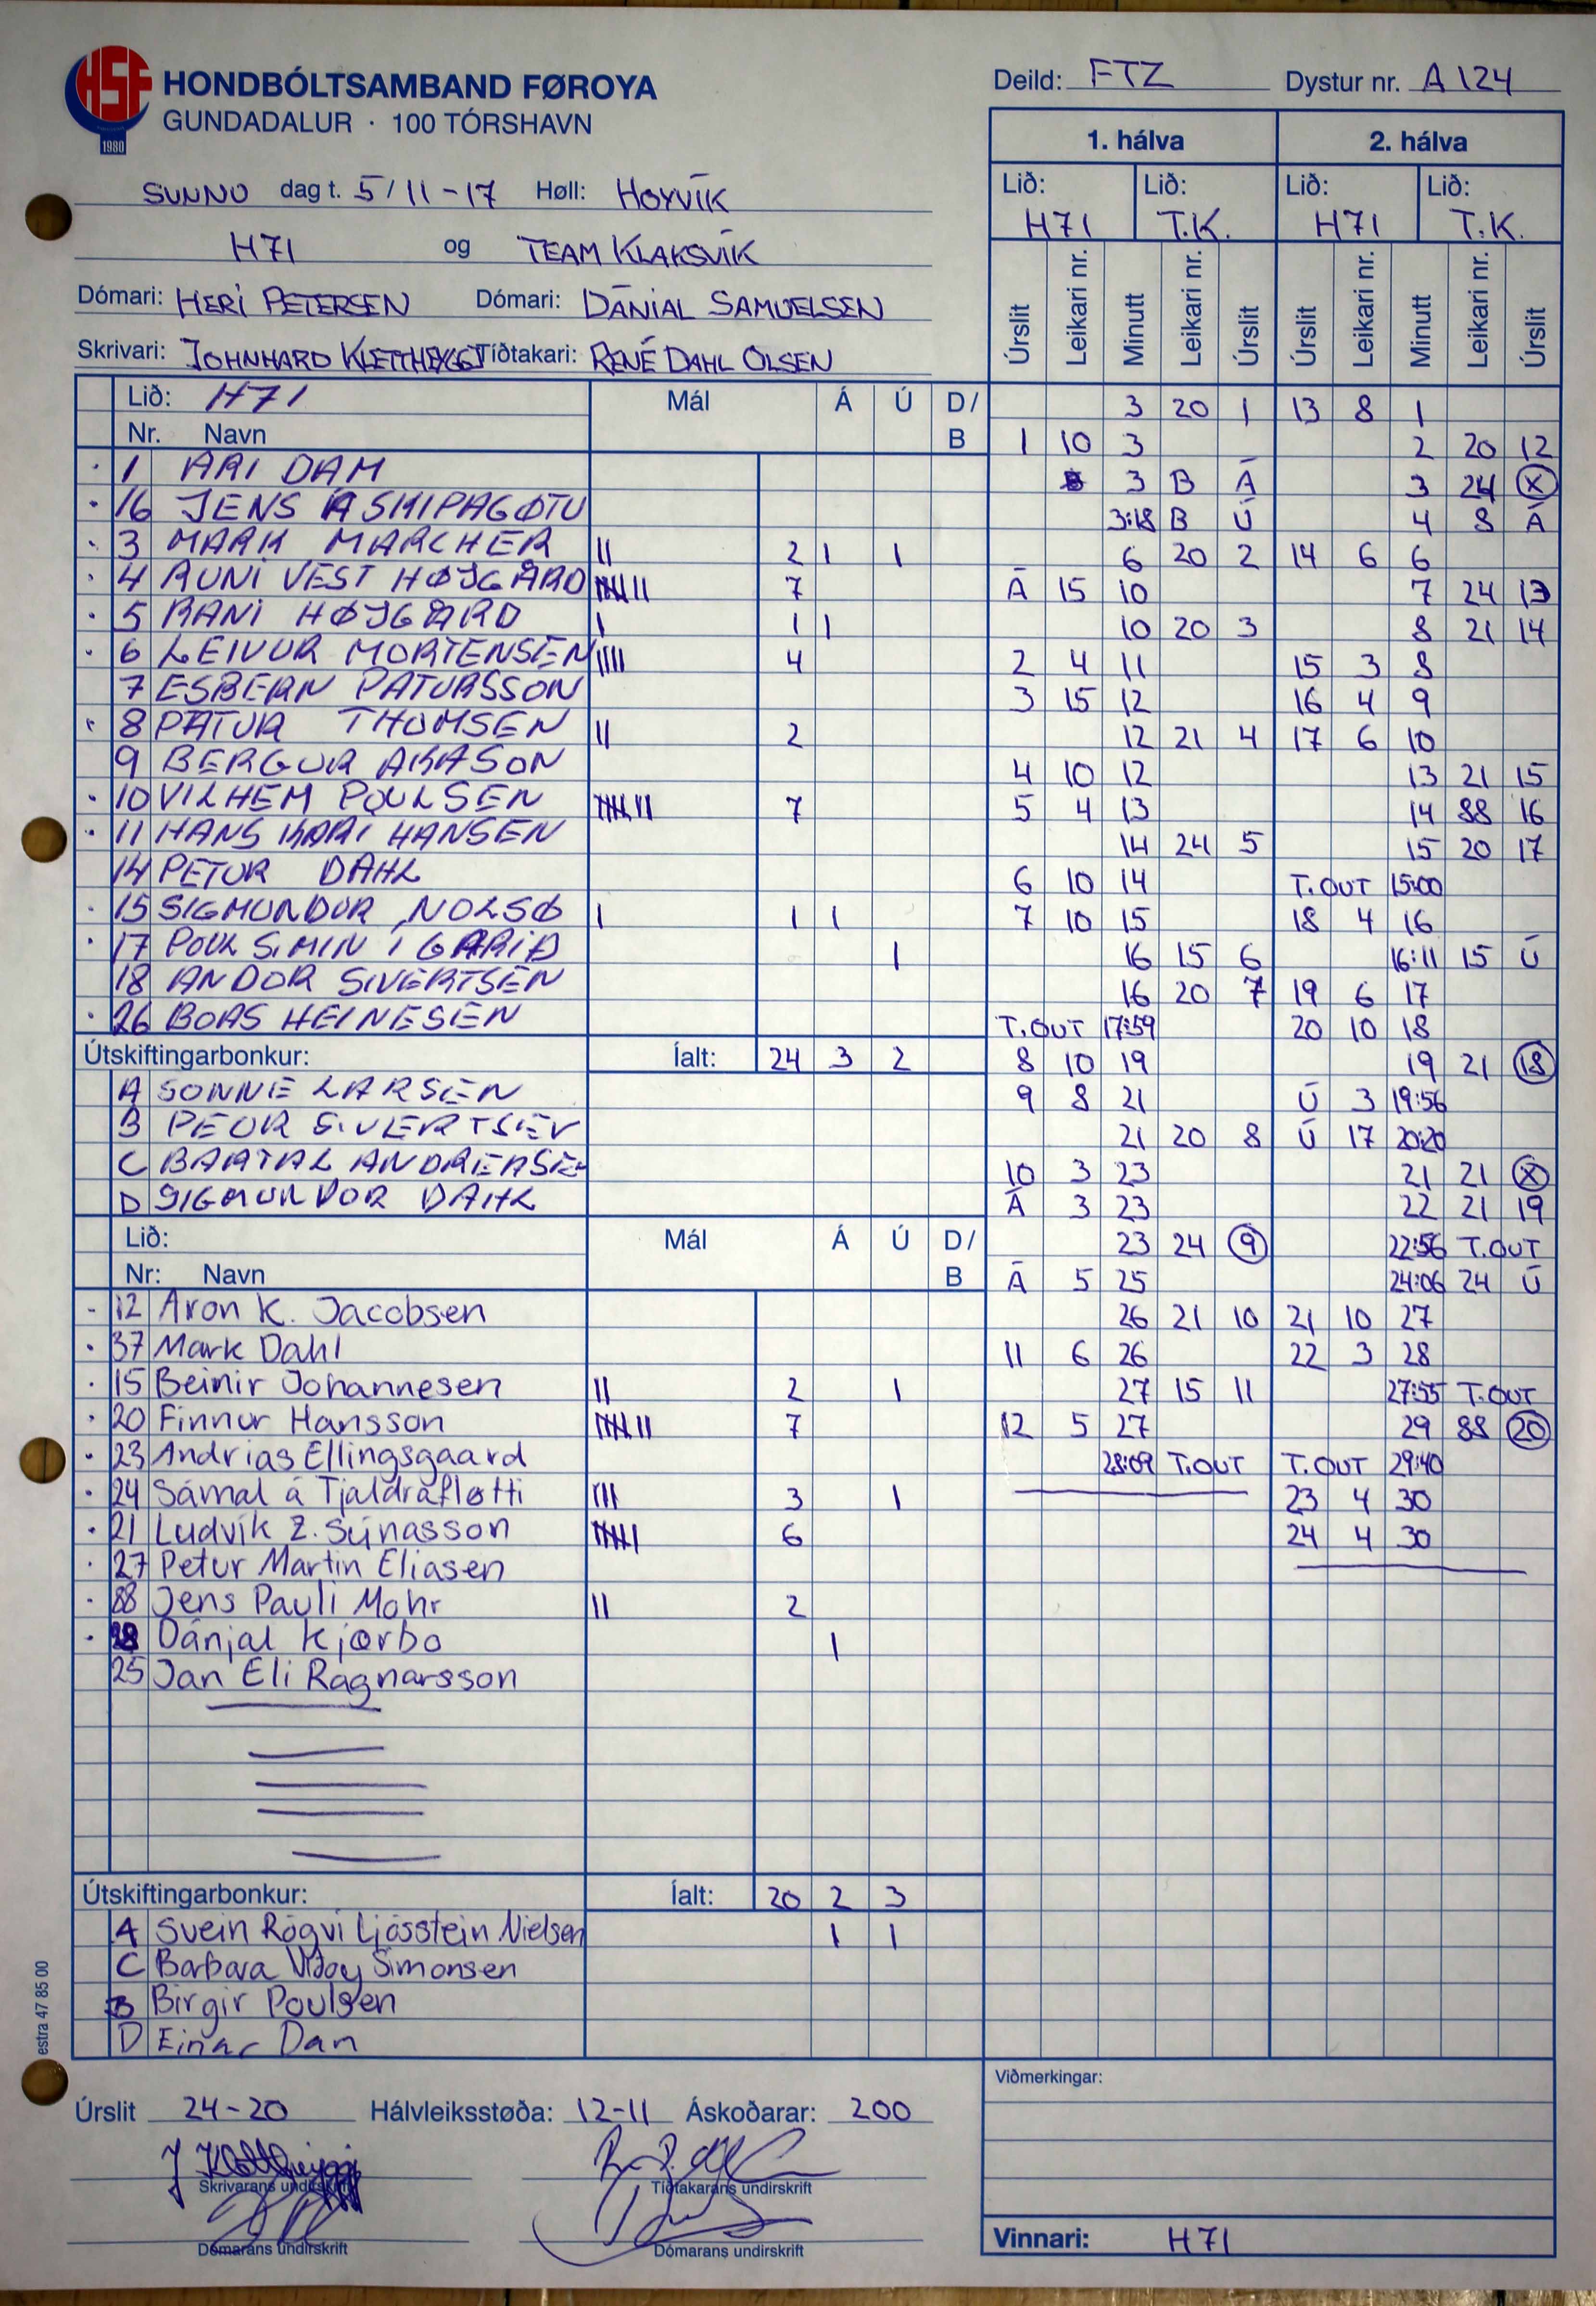 HSF
1980
HONDBÓLTSAMBAND FØROYA
GUNDADALUR · 100 TÓRSHAVN
Deild: FTZ Dystur nr. A 124
SUNNU dag t. 5/11-17 Høll: HOYVÍK
H71 og TEAM KLAKSVÍK
Dómari: HERI PETERSEN Dómari: DÁNIAL SAMUELSEN
Skrivari: JOHNHARD Tíðtakari: RENÉ DAHL OLSEN
Lið: H71 Mál Á Ú D/
Nr. Navn B
1 ARI DAM
16 JENS Á SKIPAGØTU
3 MARK MARCHER II 2 1 1
4 RUNI VEST HØJGÅRD IIIII II 7
5 RANI HØJGÅRD I 1 1
6 LEIVUR MORTENSEN IIII 4
7 ESBERN PATURSSON
8 PÆTUR THOMSEN II 2
9 BERGUR ÁKASON
10 VILHEM POULSEN IIIII II 7
11 HANS KÁRI HANSEN
14 PETUR DAHL
15 SIGMUNDUR NOLSØ I 1 1
17 POUL SIMIN Í GARÐI 1
18 ANDOR SIVERTSEN
26 BOAS HEINESEN
Útskiftingarbonkur: Íalt: 24 3 2
A SONNE LARSEN
B SIVERTSEN
C BARTAL ANDREASEN
D SIGMUNDUR DAHL
Lið: Mál Á Ú D/
Nr: Navn B
12 Aron K. Jacobsen
37 Mark Dahl
15 Beinir Johannesen II 2 1
20 Finnur Hansson IIIII II 7
23 Andrias Ellingsgaard
24 Sámal á Tjaldrafløtti III 3 1
21 Ludvík Z. Sýnasson IIIII I 6
27 Petur Martin Eliasen
88 Jens Pauli Mohr II 2
Dánjal Kjærbo 1
25 Jan Eli Ragnarsson
Útskiftingarbonkur: Íalt: 20 2 3
A Svein Røgvi Ljósstein Nielsen 1 1
C Barbara Viðoy Simonsen
B Birgir Poulsen
D Einar Dam
Úrslit 24-20 Hálvleiksstøða: 12-11 Áskoðarar: 200
Skrivarans undirskrift Tíðtakarans undirskrift
Dómarans undirskrift Dómarans undirskrift
estra 47 85 00
1. hálva 2. hálva
Lið: Lið: Lið: Lið:
H71 T.K. H71 T.K.
Úrslit Leikari nr. Minutt Leikari nr. Úrslit Úrslit Leikari nr. Minutt Leikari nr. Úrslit
3 20 1 13 8 1
1 10 3 2 20 12
3 B Á 3 24 X
3:18 B Ú 4 8 Á
6 20 2 14 6 6
Á 15 10 7 24 13
10 20 3 8 21 14
2 4 11 15 3 8
3 15 12 16 4 9
12 21 4 17 6 10
4 10 12 13 21 15
5 4 13 14 88 16
14 24 5 15 20 17
6 10 14 T.OUT 15:00
7 10 15 18 4 16
16 15 6 16:11 15 Ú
16 20 7 19 6 17
T.OUT 17:59 20 10 18
8 10 19 19 21 18
9 8 21 Ú 3 19:56
21 20 8 Ú 17 20:20
10 3 23 21 21 X
Á 3 23 22 21 19
23 24 9 22:56 T.OUT
Á 5 25 24:06 24 Ú
26 21 10 21 10 27
11 6 26 22 3 28
27 15 11 27:55 T.OUT
12 5 27 29 88 20
28:09 T.OUT T.OUT 29:40
23 4 30
24 4 30
Viðmerkingar:
Vinnari: H71